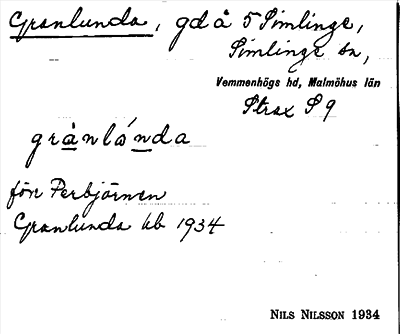 Granlunda, gd å 5 Simlinge,
Simlinge sn,
Vemmenhögs hd, Malmöhus län
Strax S 9
grànlánda
förr Perbjörnen
Granlunda kb 1934
NILS NILSSON 1934